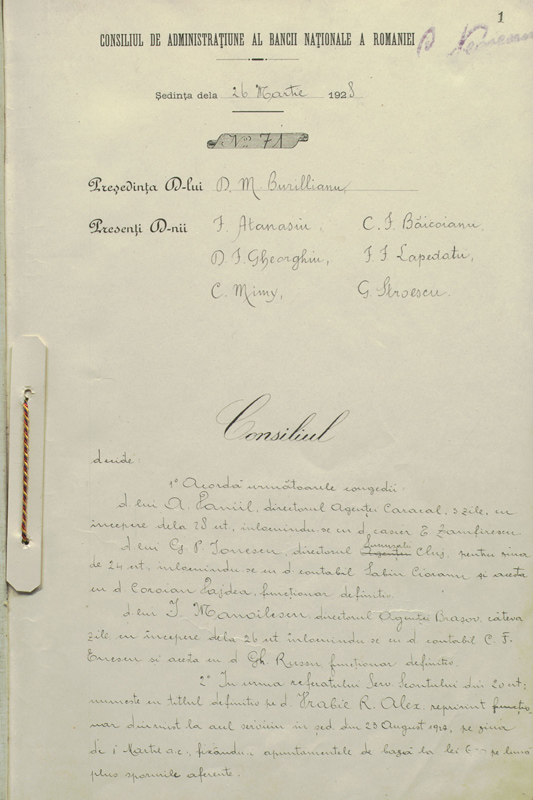 1
CONSILIUL DE ADMINISTRAȚIUNE AL BANCII NAȚIONALE A ROMANIEI
Ședința dela 26 Martie 1928
No 71
Președința D-lui D. M. Burillianu,
Presenți D-nii I. Atanasiu, C. I. Băicoianu,
D. I. Gheorghiu, I. I. Lapedatu,
C. Mimy, G. Stroescu.
Consiliul
decide:
1o Acordă următoarele congedii:
d-lui A. Paniil, directorul Agenției Caracal, zile, cu
începere dela 28 crt, înlocuindu-se cu d. casier E. Zamfirescu.
d-lui G. P. Ionescu, directorul Sucursalei Agenției Cluj, pentru ziua
de 24 crt, înlocuindu-se cu d. contabil Sabin Cioranu și acesta
cu d. Coroian funcționar definitiv.
d-lui I. Manoilescu, directorul Agenției Brașov, câteva
zile, cu începere dela 26 crt înlocuindu-se cu d. contabil C. F.
Enescu și acesta cu d. Gh. Russu funcționar definitiv.
2o În urma referatului Serv. Scontului din 20 crt;
numește cu titlul definitiv pe d. Vrabie R. Alex. reprimit funcțio-
nar diurnist la acel serviciu în șed. din 23 August pe ziua
de 1 Martie a.c., fixându-i apuntamentele de bază la lei pe lună
plus sporurile aferente.